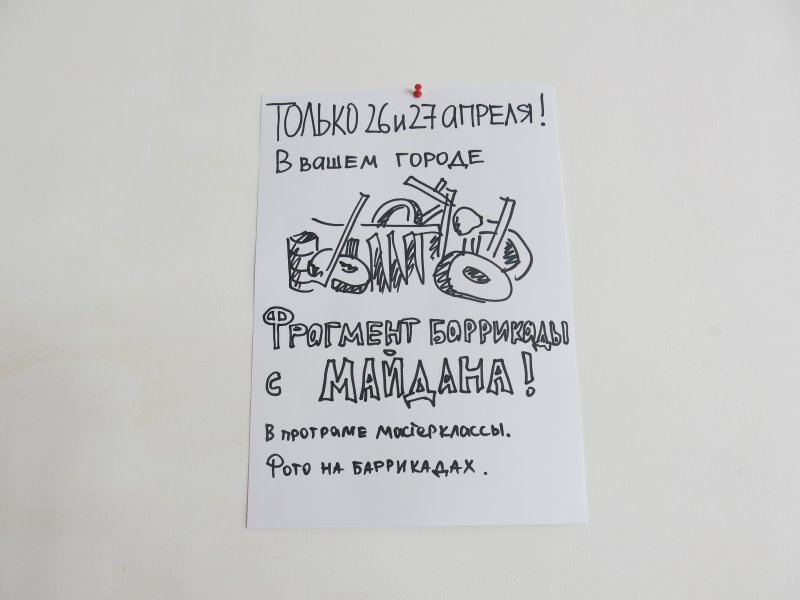 ТОЛЬКО 26 и 27 апреля!
В вашем городе
Фрагмент баррикады
с МАЙДАНА!
В програме мастерклассы.
Фото на баррикадах.